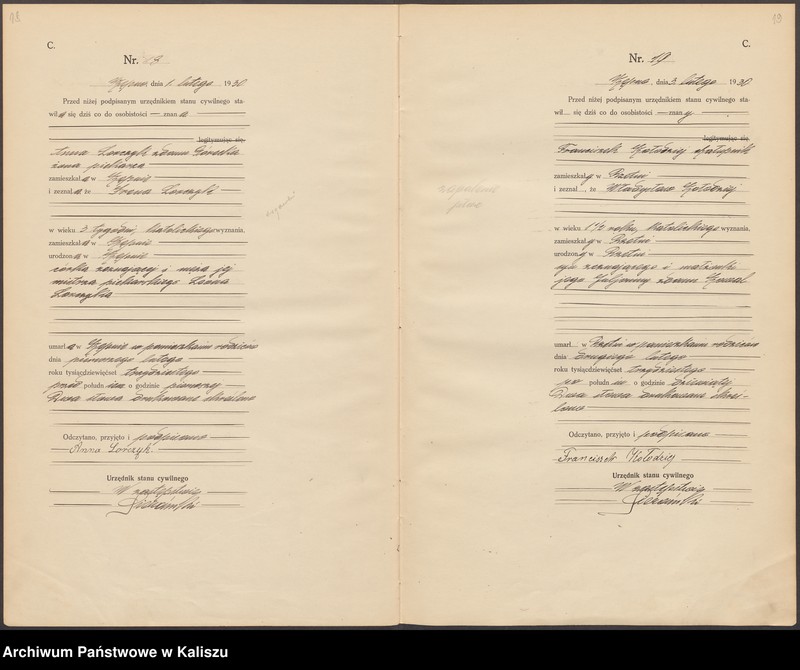 18
C.
Nr. 18
Kępno, dnia 1. lutego 1930
Przed niżej podpisanym urzędnikiem stanu cywilnego sta-
wiła się dziś co do osobistości — znana
legitymując się
Anna Lorczyk
żona piekarza
zamieszkała w Kępnie
i zeznała, że Lorczyk
w wieku 3 tygodni, katolickiego wyznania,
zamieszkała w Kępnie
urodzona w Kępnie
córka zeznającej i męża jej
mistrza piekarskiego
Lorczyka
umarła w Kępnie w pomieszkaniu rodziców
dnia pierwszego lutego
roku tysiącdziewięćset trzydziestego
przed połudn iem o godzinie pierwszej
słowa drukowane skreślono
Odczytano, przyjęto i podpisano
Anna Lorczyk.
Urzędnik stanu cywilnego
W zastępstwie
19
C.
Nr. 19
Kępno, dnia 3. lutego 1930
Przed niżej podpisanym urzędnikiem stanu cywilnego sta-
wił się dziś co do osobistości — znany
legitymując się
Franciszek Kołodziej
zamieszkały w
i zeznał, że Władysław Kołodziej
w wieku 1½ roku, katolickiego wyznania,
zamieszkały w
urodzony w
syn zeznającego i małżonki
jego Juljanny z domu
umarł w w pomieszkaniu rodziców
dnia drugiego lutego
roku tysiącdziewięćset trzydziestego
po połudn iu o godzinie dziewiątej
słowa drukowane skre-
ślono
Odczytano, przyjęto i podpisano
Franciszek Kołodziej
Urzędnik stanu cywilnego
W zastępstwie
Archiwum Państwowe w Kaliszu